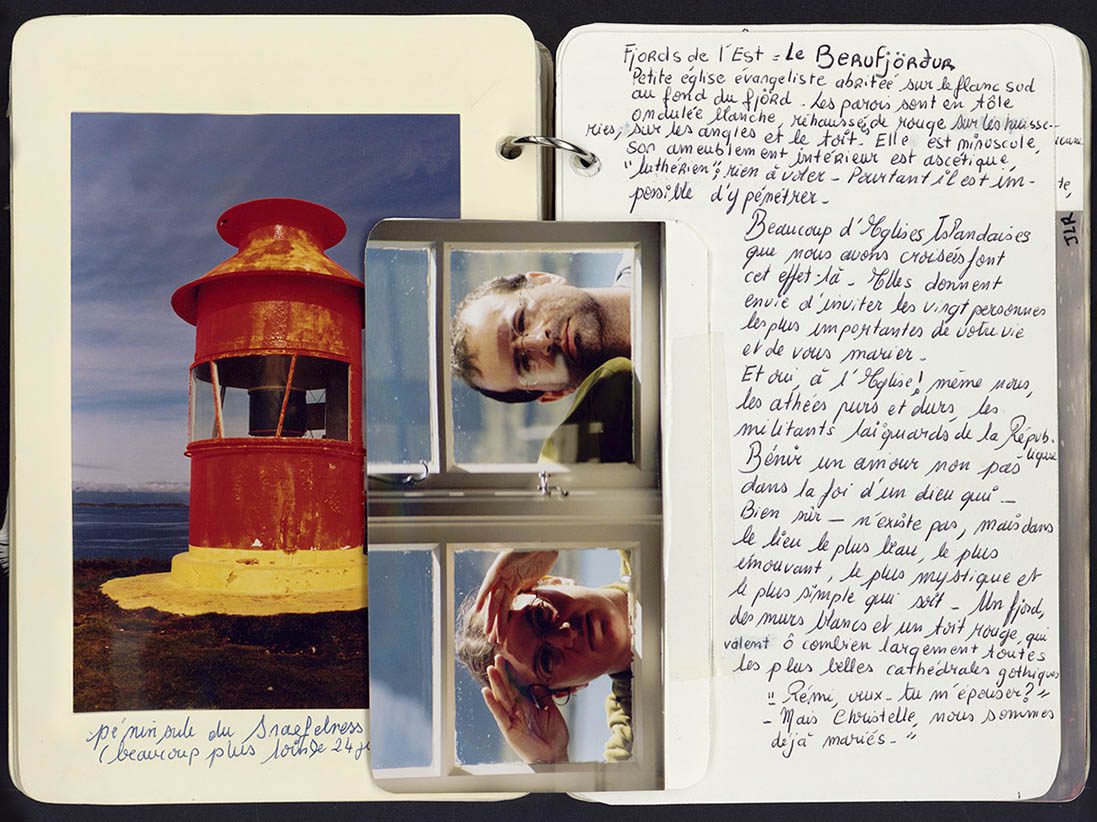 péninsule du Snaefelness
(beaucoup plus loin le 24
Fjords de l'Est = Le BERUFJÖRÐUR
Petite église évangeliste abritée sur le flanc sud
au fond du fjörd - Les parois sont en tôle
ondulée blanche, réhaussée de rouge sur les huisse-
ries, sur les angles et le toit. Elle est minuscule,
son ameublement intérieur est ascétique,
"luthérien"; rien à voler - Pourtant il est im-
possible d'y pénétrer -
Beaucoup d'Eglises Islandaises
que nous avons croisées font
cet effet-là - Elles donnent
envie d'inviter les vingt personnes
les plus importantes de votre vie
et de vous marier -
Et oui, à l'Eglise! même nous,
les athées purs et durs, les
militants laïquards de la Répub-
lique
Bénir un amour non pas
dans la foi d'un dieu qui -
Bien sûr - n'existe pas, mais dans
le lieu le plus beau, le plus
émouvant, le plus mystique et
le plus simple qui soit - Un fjord,
des murs blancs et un toit rouge, qui
valent ô combien largement toutes
les plus belles cathédrales gothiques
"Rémi, veux-tu m'épouser?"
- Mais Christelle, nous sommes
déjà mariés -"
JLR